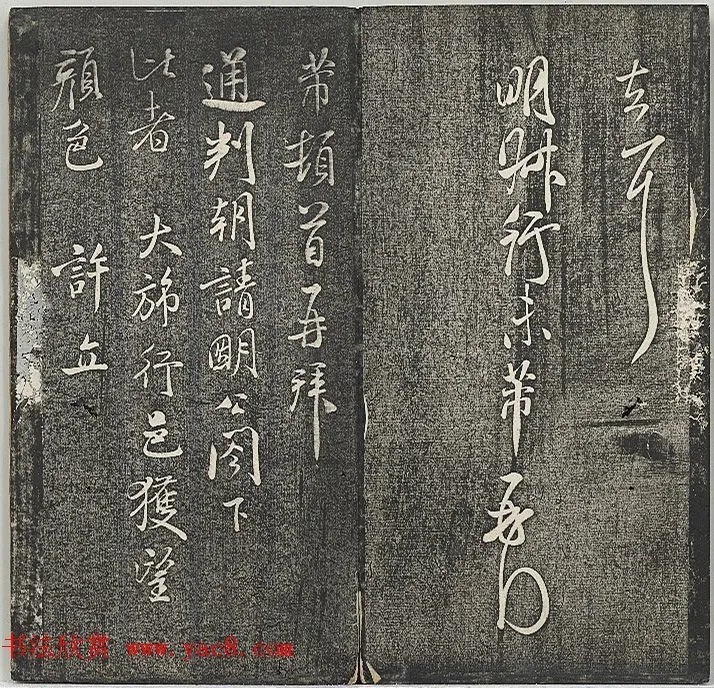 明叔行末芾再
芾頓首再拜
通判朝請明公閤下
比者 大旆行邑獲望
顏色 許立
书法欣赏 www.yac8.com